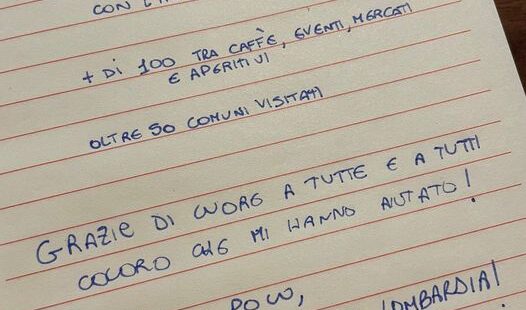 CON L
+ DI 100 TRA CAFFÈ, EVENTI, MERCATI
E APERITIVI
OLTRE 50 COMUNI VISITATI
GRAZIE DI CUORE A TUTTE E A TUTTI
COLORO CHE MI HANNO AIUTATO!
LOMBARDIA!